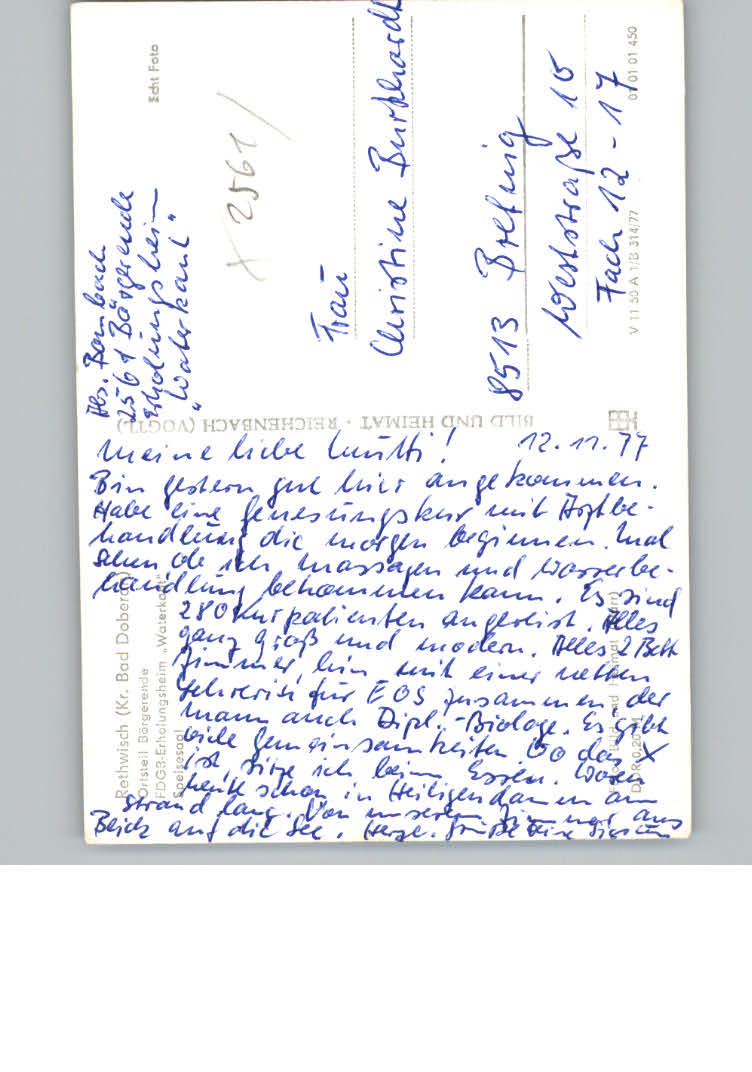 Meine liebe Mutti! 12.11.77
Bin gestern gut hier angekommen.
Habe eine Genesungskur mit Arztbe-
handlung die morgen beginnen. Mal
sehen ob ich Massagen und Wasserbe-
handlung bekommen kann. Es sind
280 Kurpatienten angereist. Alles
ganz groß und modern. Alles 2 Bett
Zimmer, bin mit einer netten
Lehrerin für EOS zusammen, der
Mann auch Dipl.-Biologe. Es gibt
viele Gemeinsamkeiten Wo das X
ist, sitze ich beim Essen. Waren
heute schon in Heiligendamm am
Strand lang. Von unserem Zimmer aus
Blick auf die See. Herzl. Grüße
Abs. Bambach
2561 Börgerende
Erholungsheim
"Waterkant"
X 2561/
Frau
Christine Burkhardt
8513 Bretnig
Weststraße 15
Fach 12-17
Echt Foto
01 01 01 450
V 11 50 A 1/B 314/77
BILD UND HEIMAT · REICHENBACH (VOGTL)
Rethwisch (Kr. Bad Doberan)
Ortsteil Börgerende
FDGB-Erholungsheim „Waterkant"
Speisesaal